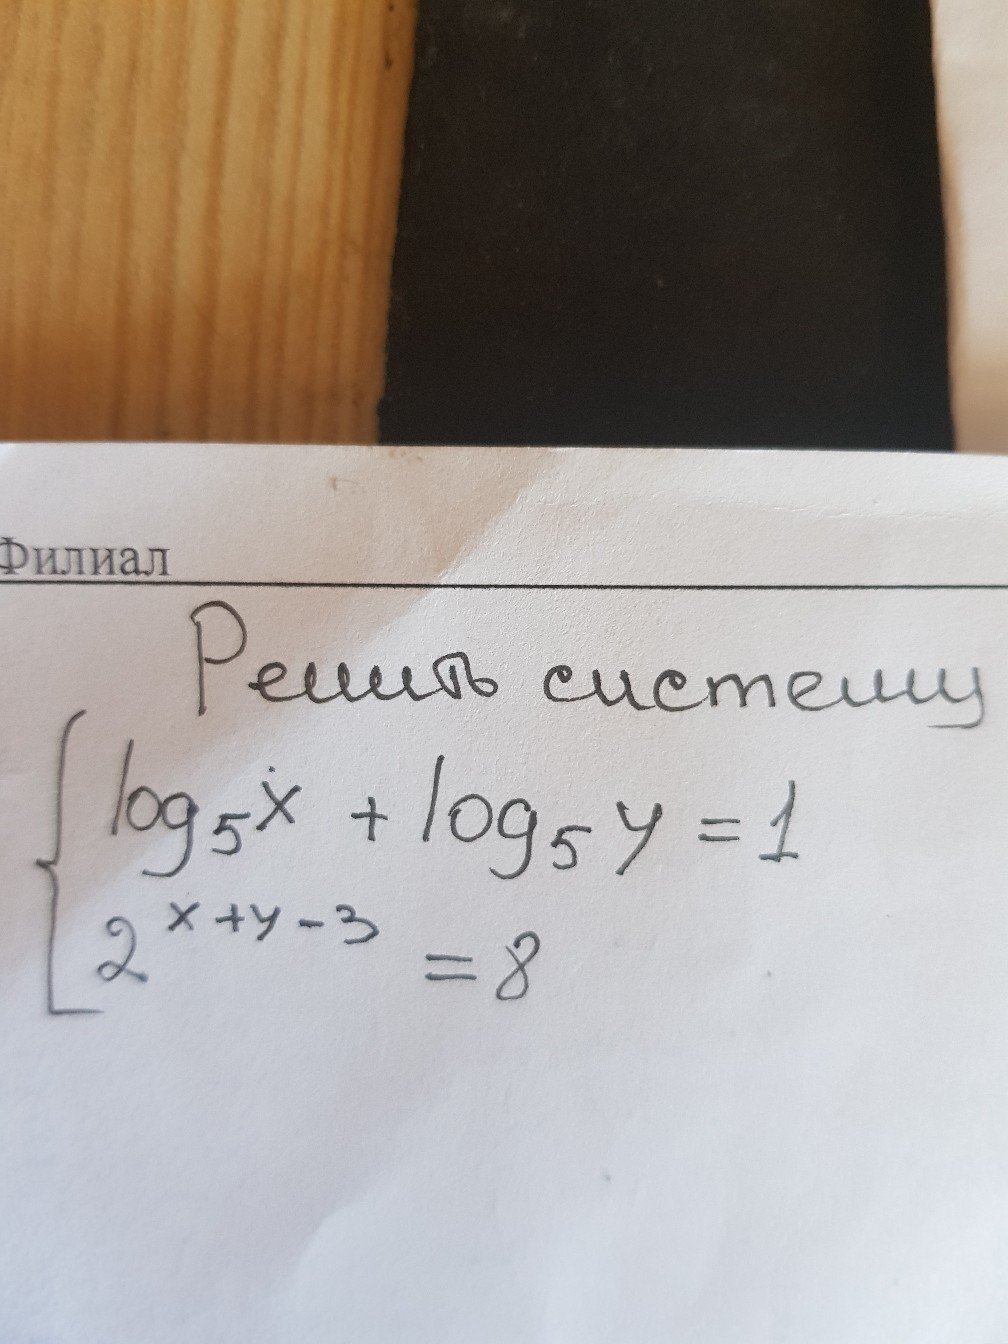 Филиал
Решить систему
log₅x + log₅y = 1
2^(x+y-3) = 8